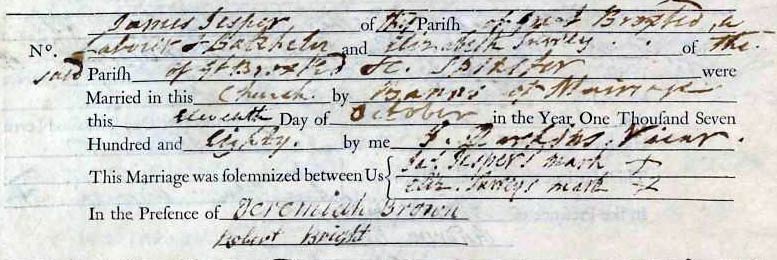 James Jesper of this Parish of Great Braxted, a
No. Labourer & Batcheler and Elizabeth Surrey of the
said Parish of Gt Braxted Spinster were
Married in this Church by Banns of Marriage
this eleventh Day of October in the Year One Thousand Seven
Hundred and Eighty by me Vicar.
This Marriage was solemnized between Us { Jas. Jesper's mark +
Eliz. Surreys mark +
In the Presence of Jeremiah Brown
Robert Bright